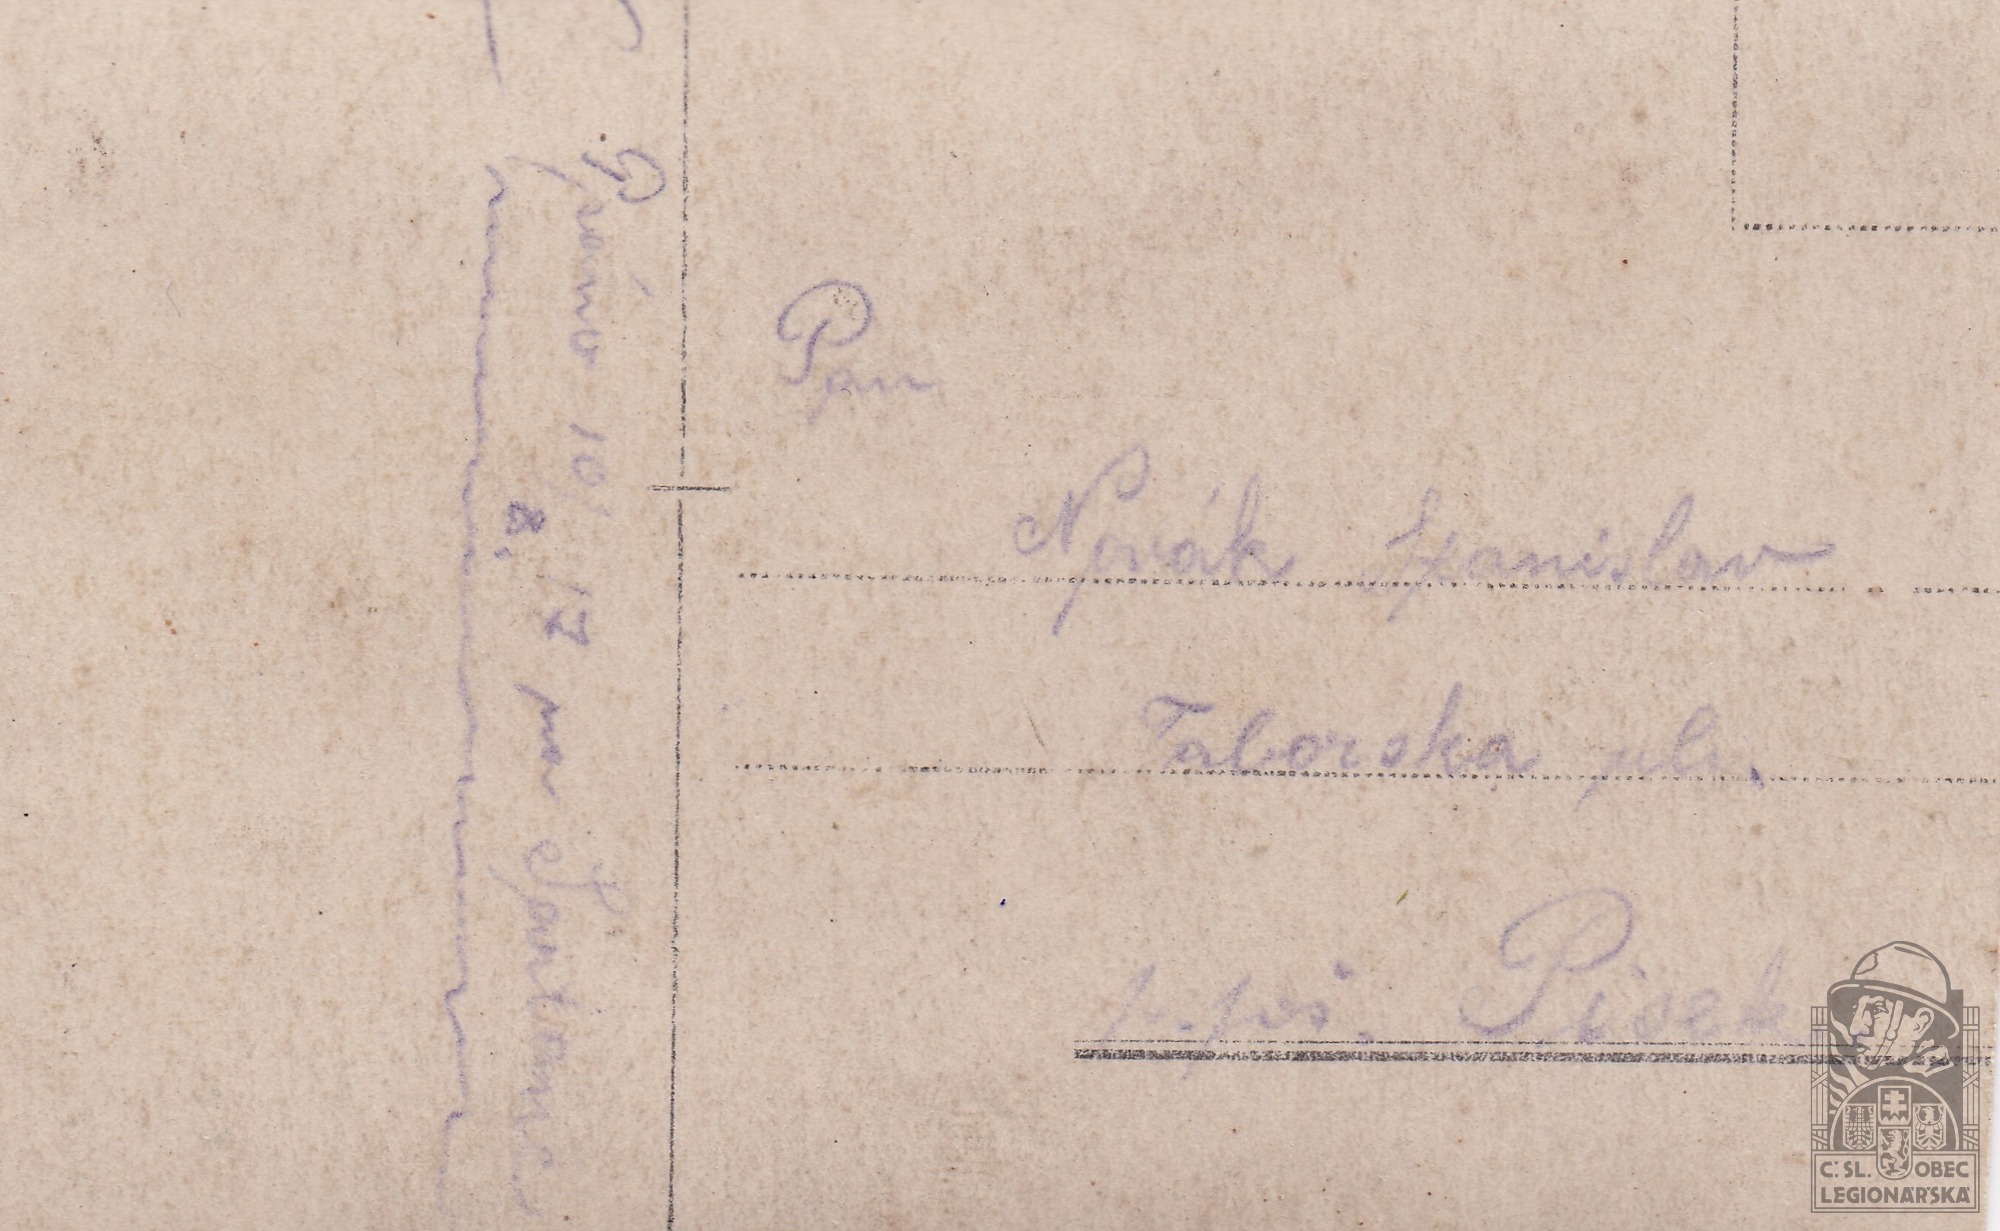 Psáno 10/8. 17 na Santane
Pan
Novák Stanislav
Taborska ul.
p. poš. Písek
Č. SL. OBEC
LEGIONÁŘSKÁ